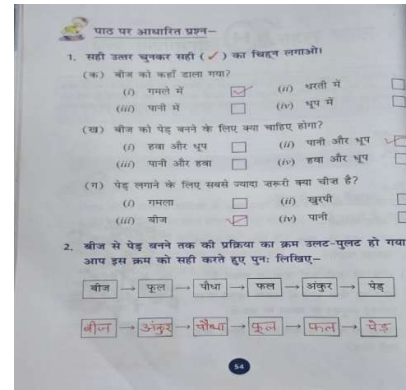 पाठ पर आधारित प्रश्न–
1. सही उत्तर चुनकर सही (✓) का चिह्न लगाओ।
(क) बीज को कहाँ डाला गया?
(i) गमले में ✓ (ii) धरती में
(iii) पानी में (iv) धूप में
(ख) बीज को पेड़ बनने के लिए क्या चाहिए होगा?
(i) हवा और धूप (ii) पानी और धूप ✓
(iii) पानी और हवा (iv) हवा और धूप
(ग) पेड़ लगाने के लिए सबसे ज्यादा जरूरी क्या चीज है?
(i) गमला (ii) खुरपी
(iii) बीज ✓ (iv) पानी
2. बीज से पेड़ बनने तक की प्रक्रिया का क्रम उलट-पुलट हो गया
आप इस क्रम को सही करते हुए पुनः लिखिए–
बीज → फूल → पौधा → फल → अंकुर → पेड़
बीज → अंकुर → पौधा → फूल → फल → पेड़
54